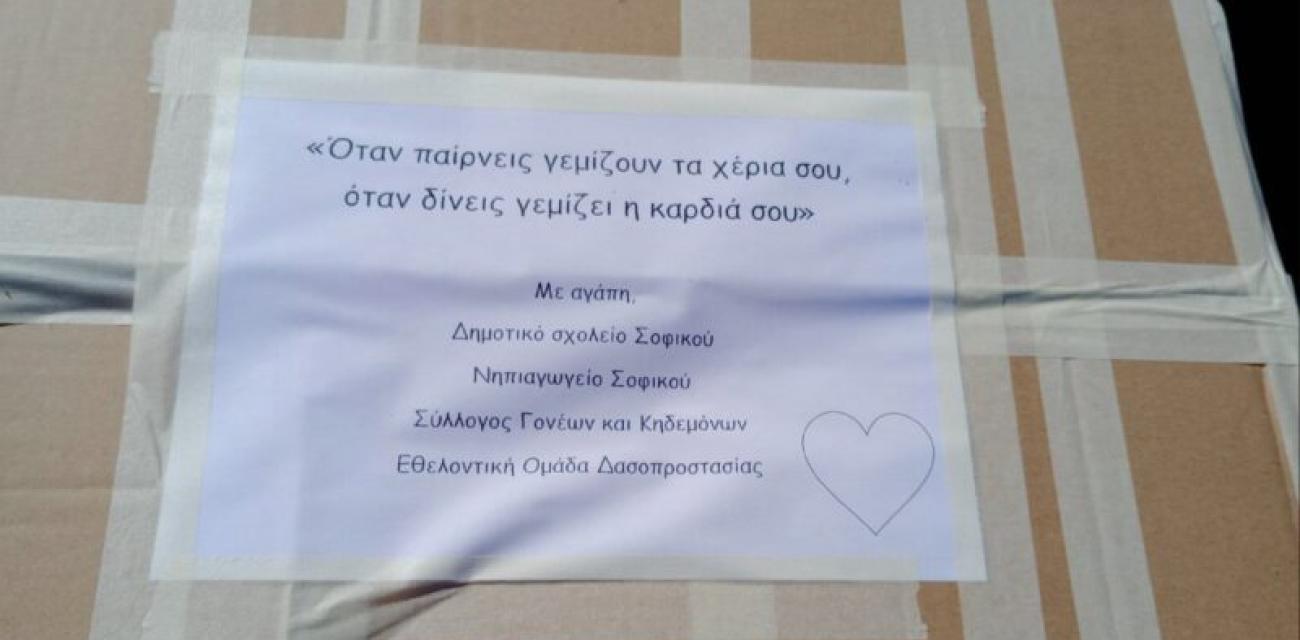 «Όταν παίρνεις γεμίζουν τα χέρια σου,
όταν δίνεις γεμίζει η καρδιά σου»
Με αγάπη,
Δημοτικό σχολείο Σοφικού
Νηπιαγωγείο Σοφικού
Σύλλογος Γονέων και Κηδεμόνων
Εθελοντική Ομάδα Δασοπροστασίας